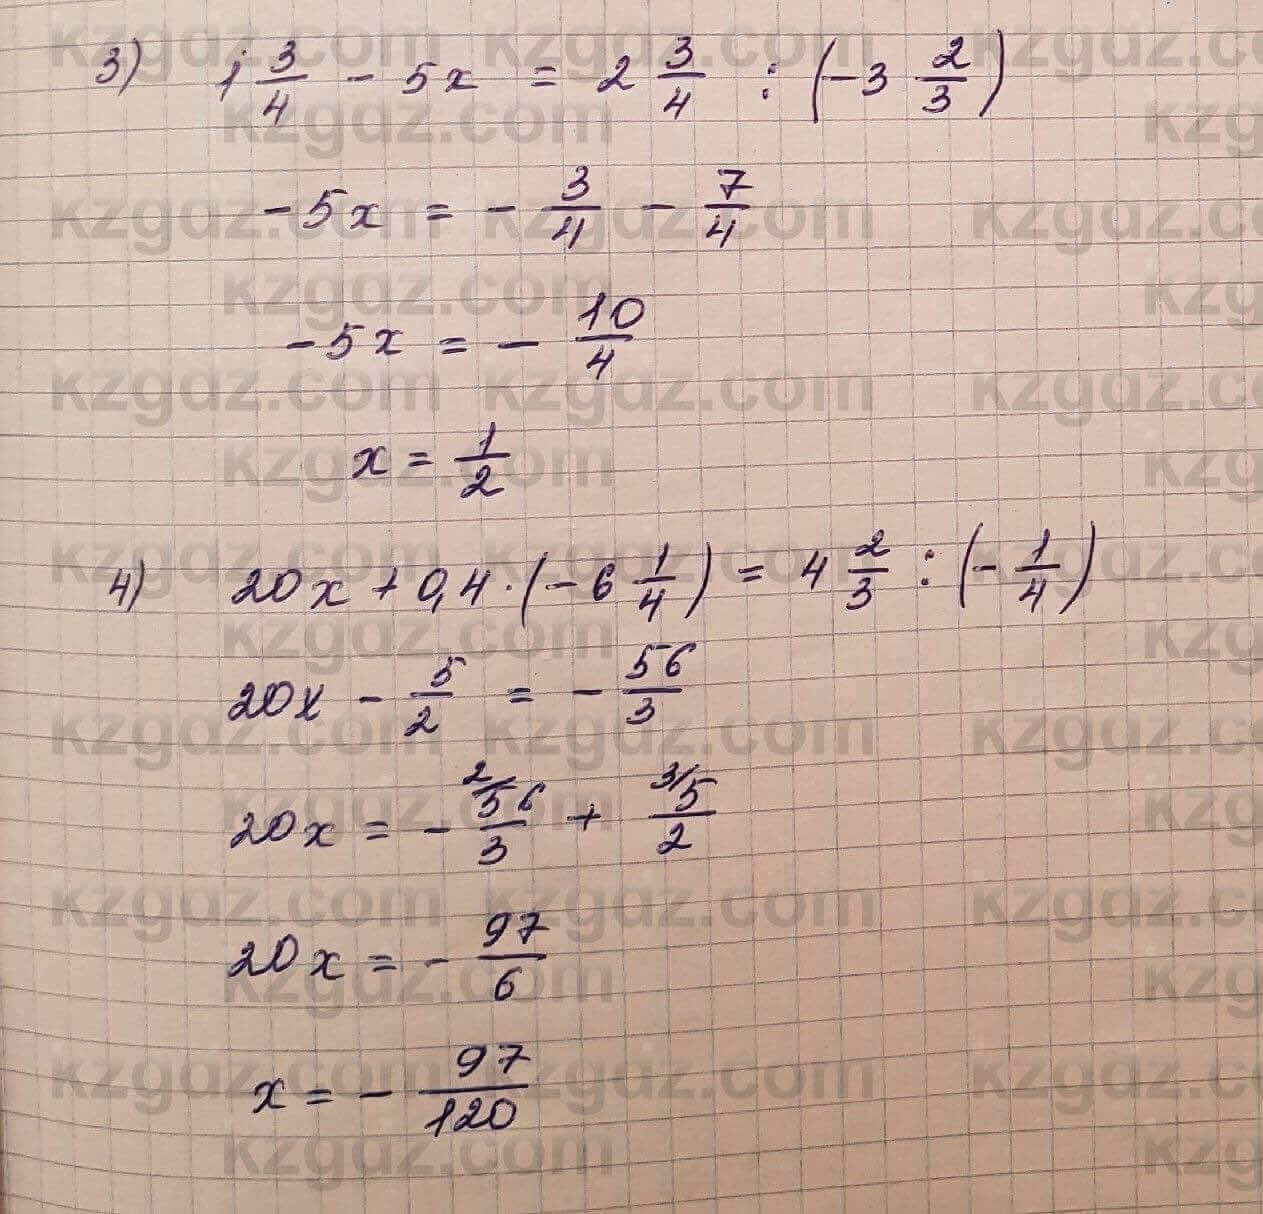 3) 1 3/4 - 5x = 2 3/4 : (-3 2/3)
-5x = - 3/4 - 7/4
-5x = - 10/4
x = 1/2
4) 20x + 0,4 · (-6 1/4) = 4 2/3 : (- 1/4)
20x - 5/2 = - 56/3
20x = - 2/ 56/3 + 3/ 5/2
20x = - 97/6
x = - 97/120
kzgdz.com